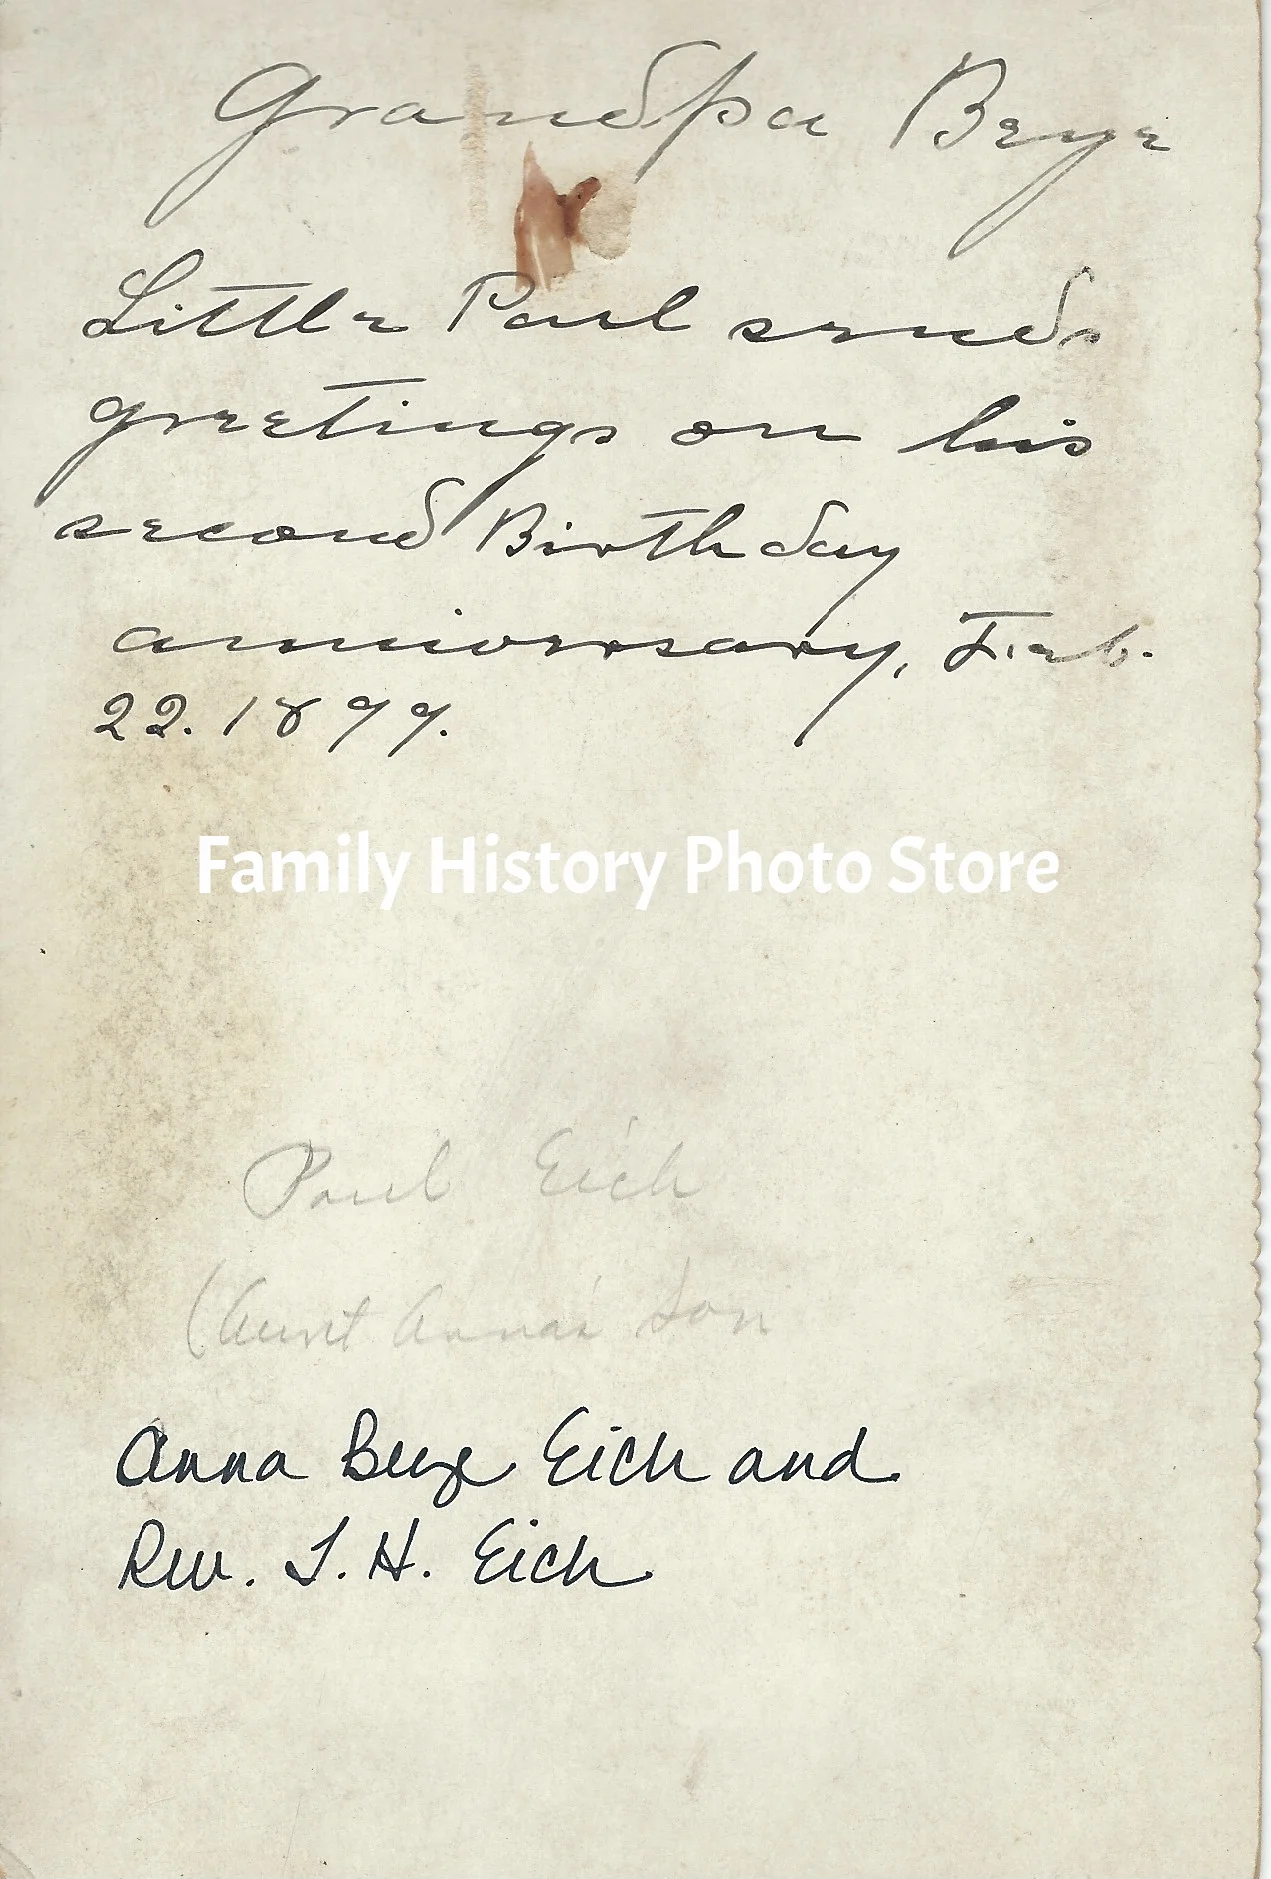 Grandpa Beye
Little Paul sends
greetings on his
second Birthday
anniversary, Feb.
22. 1899.
Family History Photo Store
Paul Eich
(Aunt Anna's son
Anna Beye Eich and
Rev. J. H. Eich